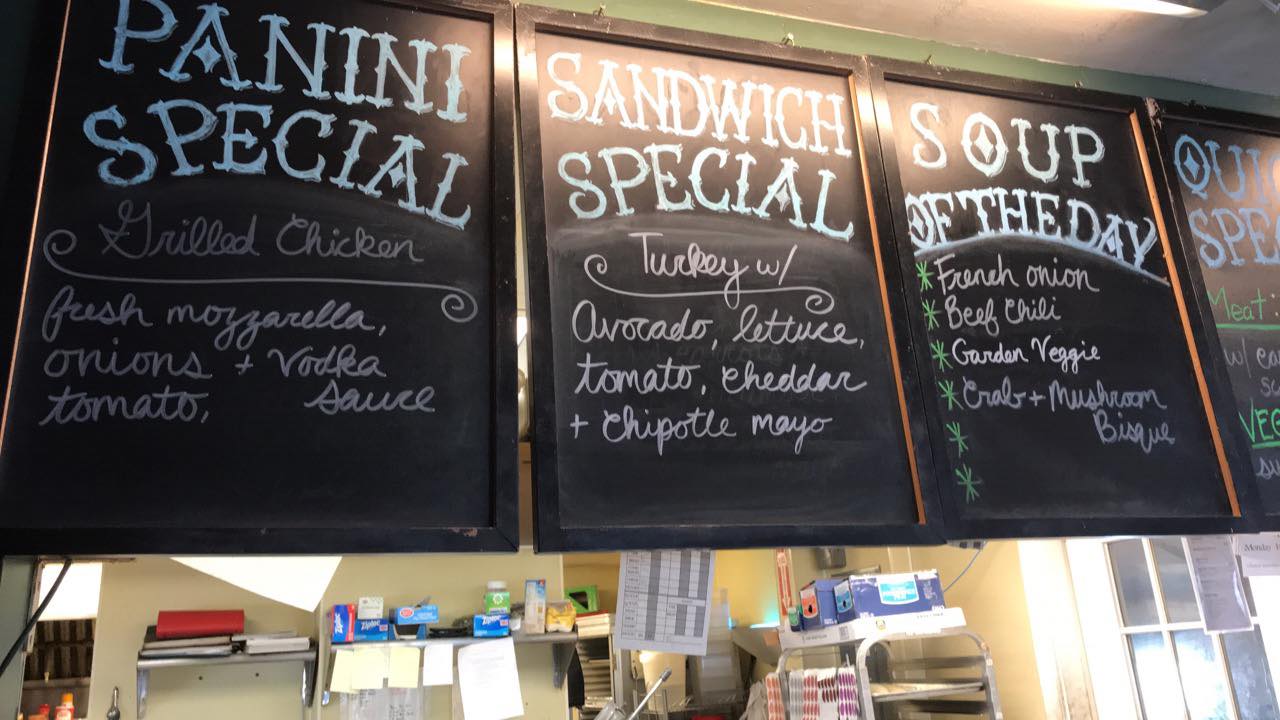 PANINI
SPECIAL
Grilled Chicken
fresh mozzarella,
onions + Vodka
tomato, Sauce
SANDWICH
SPECIAL
Turkey w/
Avocado, lettuce,
tomato, cheddar
+ Chipotle mayo
SOUP
OF THE DAY
* French onion
* Beef Chili
* Garden Veggie
* Crab + Mushroom
Bisque
*
*
Meat:
w/
Ziploc
Ziploc
Monday